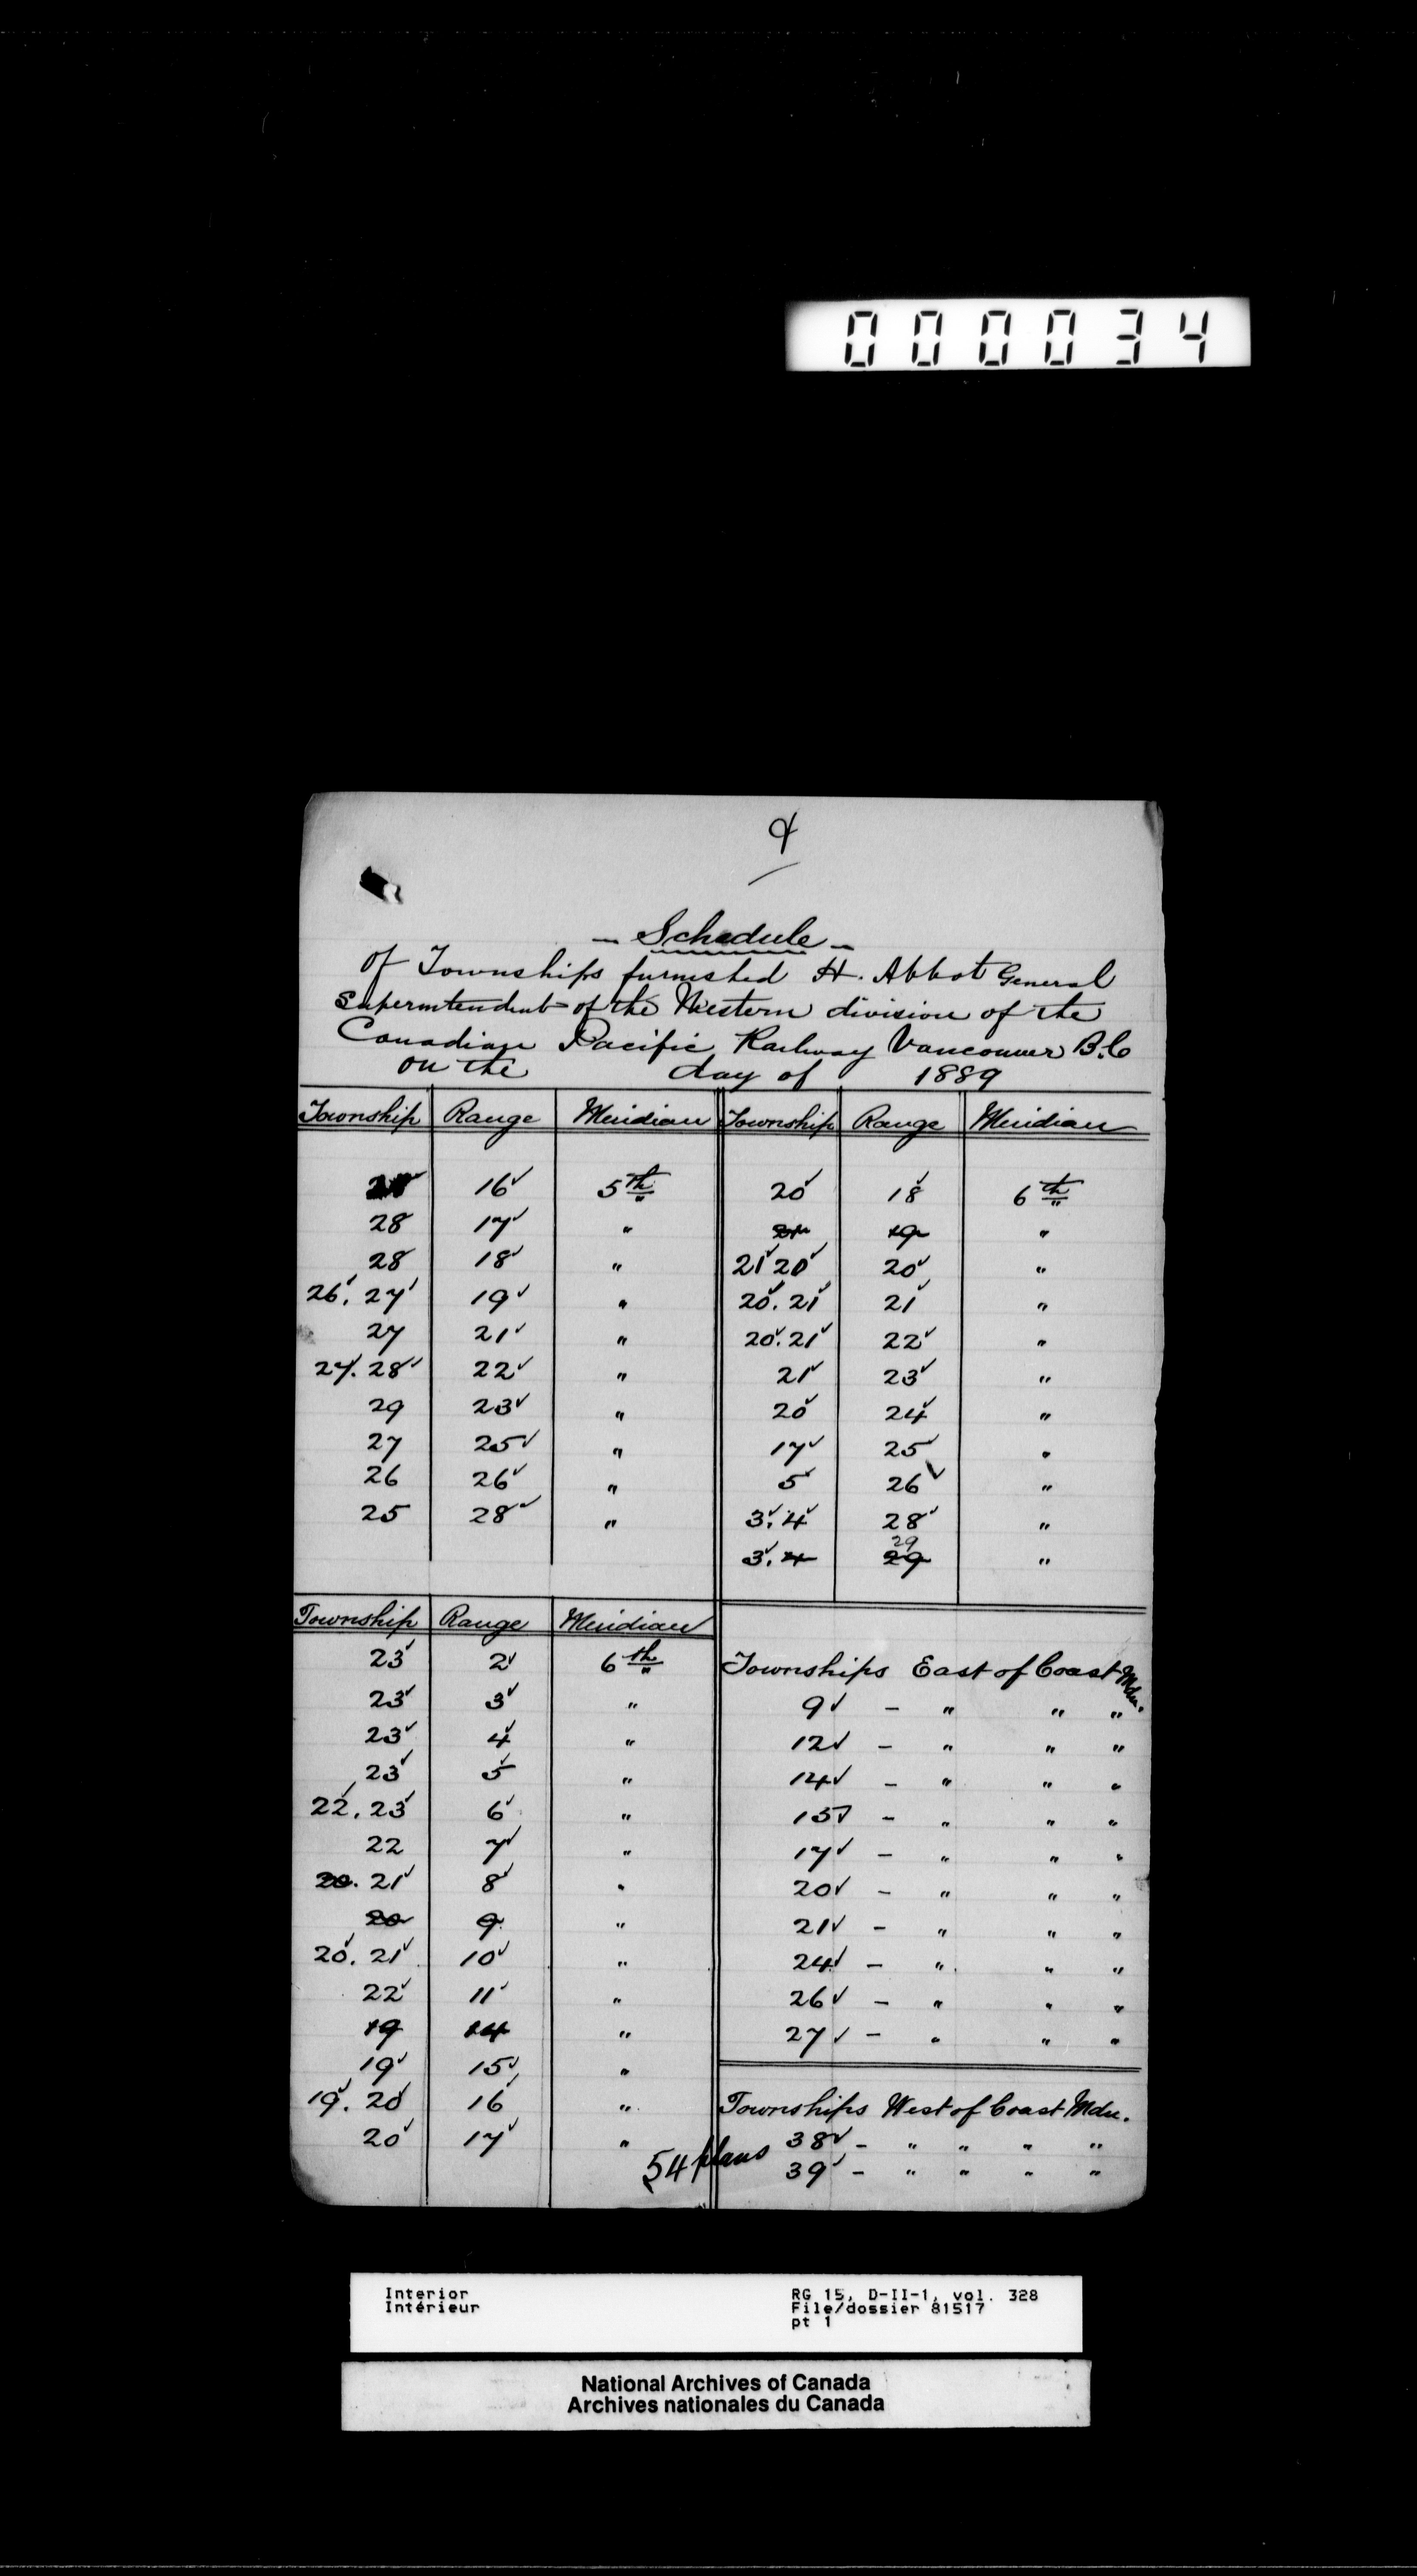 000034
4
- Schedule -
of Townships furnished H. Abbot General
Superintendent of the Western division of the
Canadian Pacific Railway Vancouver B.C
on the day of 1889
Township Range Meridian Township Range Meridian
16✓ 5th 20✓ 18✓ 6th
28 17✓ " 21 19 "
28 18✓ " 21✓ 20✓ 20✓ "
26✓. 27✓ 19✓ " 20✓. 21✓ 21✓ "
27 21✓ " 20✓. 21✓ 22✓ "
27✓. 28✓ 22✓ " 21✓ 23✓ "
29 23✓ " 20✓ 24✓ "
27 25✓ " 17✓ 25✓ "
26 26✓ " 5✓ 26✓ "
25 28✓ " 3✓. 4✓ 28✓ "
3✓. 4 29 29 "
Township Range Meridian
23✓ 2✓ 6th Townships East of Coast Mdn.
23✓ 3✓ " 9✓ - " " "
23✓ 4✓ " 12✓ - " " "
23✓ 5✓ " 14✓ - " " "
22✓. 23✓ 6✓ " 15✓ - " " "
22 7✓ " 17✓ - " " "
20. 21✓ 8✓ " 20✓ - " " "
20 9 " 21✓ - " " "
20✓. 21✓ 10✓ " 24✓ - " " "
22✓ 11✓ " 26✓ - " " "
19 14 " 27✓ - " " "
19✓ 15✓ "
19✓. 20✓ 16✓ " Townships West of Coast Mdn.
20✓ 17✓ " 38✓ - " " " "
54 plans 39✓ - " " " "
Interior RG 15, D-II-1, vol. 328
Intérieur File/dossier 81517
pt 1
National Archives of Canada
Archives nationales du Canada